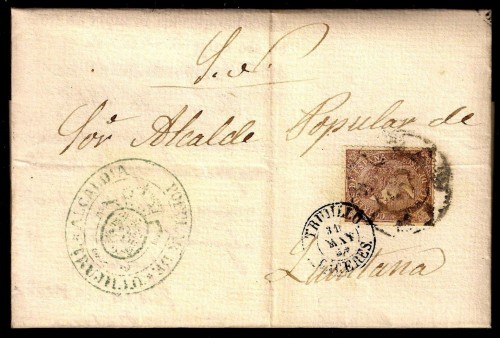 S. N.
Sor Alcalde Popular de
ALCALDIA POPULAR DE
TRUJILLO
31
MAY
CACERES.